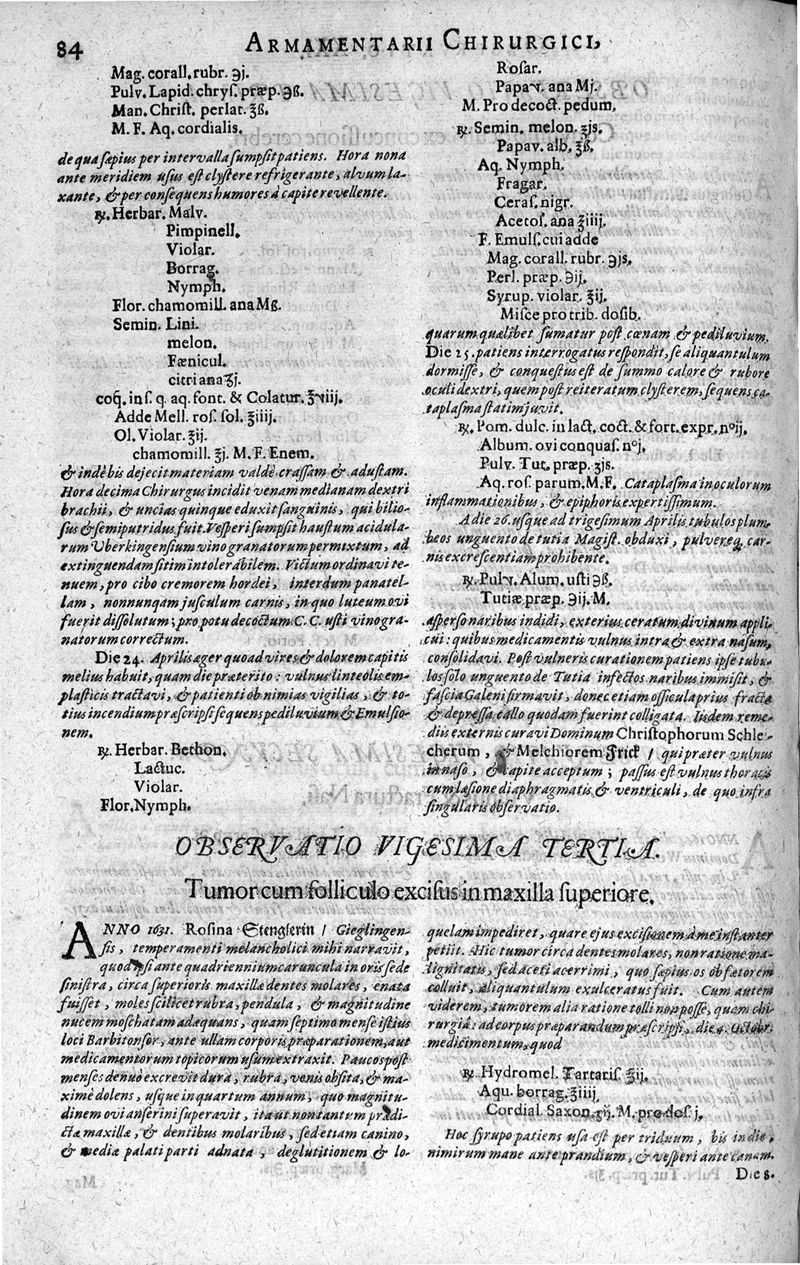 84
ARMAMENTARII CHIRURGICI,
Mag. corall. rubr. ℈j.
Pulv. Lapid. chryſ. præp. ℈ß.
Man. Chriſt. perlat. ʒß.
M. F. Aq. cordialis.
de qua ſæpius per intervalla ſumpſit patiens. Hora nona
ante meridiem uſus eſt clyſtere refrigerante, alvum la-
xante, & per conſequens humores à capite revellente.
℞. Herbar. Malv.
Pimpinell.
Violar.
Borrag.
Nymph.
Flor. chamomill. ana Mß.
Semin. Lini.
melon.
Fœnicul.
citri ana ʒj.
coq̃. in ſ. q. aq. font. & Colatur. ℥viij.
Adde Mell. roſ. ſol. ℥iiij.
Ol. Violar. ℥ij.
chamomill. ℥j. M. F. Enem.
& inde bis dejecit materiam valdè craſſam & aduſtam.
Hora decima Chirurgus incidit venam medianam dextri
brachii, & uncias quinque eduxit ſanguinis, qui bilio-
ſus & ſemiputridus fuit. Veſperi ſumpſit hauſtum acidula-
rum Uberkingenſium vino granatorum permixtum, ad
extinguendam ſitim intolerabilem. Victum ordinavi te-
nuem, pro cibo cremorem hordei, interdum panatel-
lam, nonnunquam juſculum carnis, in quo luteum ovi
fuerit diſſolutum; pro potu decoctum C. C. uſti vino gra-
natorum correctum.
Die 24. Aprilis æger quoad vires & dolorem capitis
melius habuit, quam die præterito: vulnus linteolis em-
plaſticis tractavi, & patienti ob nimias vigilias, & to-
tius incendium præſcripſi ſequens pediluvium & Emulſio-
nem.
℞. Herbar. Bethon.
Lactuc.
Violar.
Flor. Nymph.
Roſar.
Papav. ana Mj.
M. Pro decoct. pedum.
℞. Semin. melon. ʒjs.
Papav. alb. ʒß.
Aq. Nymph.
Fragar.
Ceraſ. nigr.
Acetoſ. ana ℥iiij.
F. Emulſ. cui adde
Mag. corall. rubr. ℈js.
Perl. præp. ℈ij.
Syrup. violar. ℥ij.
Miſce pro trib. doſib.
quarum quælibet ſumatur poſt cœnam & pediluvium.
Die 25. patiens interrogatus reſpondit, ſe aliquantulum
dormiſſe, & conqueſtus eſt de ſummo calore & rubore
oculi dextri, quem poſt reiteratum clyſterem, ſequens ca-
taplaſma ſtatim juvit.
℞. Pom. dulc. in lact. coct. & fort. expr. nº ij.
Album. ovi conquaſ. nº j.
Pulv. Tut. præp. ʒjs.
Aq. roſ. parum. M. F. Cataplaſma in oculorum
inflammationibus, & epiphoris expertiſſimum.
A die 26. uſque ad trigeſimum Aprilis tubulos plum-
beos unguento de tutia Magiſt. obduxi, pulvereq; car-
nis excreſcentiam prohibente.
℞. Pulv. Alum. uſti ℈ß.
Tutiæ præp. ℈ij. M.
aſperſo naribus indidi, exterius ceratum divinum appli-
cui: quibus medicamentis vulnus intra & extra naſum,
conſolidavi. Poſt vulneris curationem patiens ipſe tubu-
los ſolo unguento de Tutia infectos naribus immiſit, &
faſcia Galeni firmavit, donec etiam oſſicula prius fracta
& depreſſa callo quodam fuerint colligata. Iisdem reme-
diis externis curavi Dominum Christophorum Schle-
cherum, & Melchiorem Frick / qui præter vulnus
in naſo, & capite acceptum; paſſus eſt vulnus thoracis
cum læſione diaphragmatis & ventriculi, de quo infra
ſingularis obſervatio.
OBSERVATIO VIGESIMA TERTIA.
Tumor cum folliculo exciſus in maxilla ſuperiore.
ANNO 1631. Roſina Stenglerin / Gieglingen-
ſis, temperamenti melancholici mihi narravit,
quod ſi ante quadriennium caruncula in oris ſede
ſiniſtra, circa ſuperioris maxillæ dentes molares, enata
fuiſſet, moles ſcilicet rubra, pendula, & magnitudine
nucem moſchatam adæquans, quam ſeptimo menſe iſtius
loci Barbitonſor, ante ullam corporis præparationem, aut
medicamentorum topicorum uſum extraxit. Paucos poſt
menſes denuò excrevit dura, rubra, venis obſita, & ma-
ximè dolens, uſque in quartum annum, quo magnitu-
dinem ovi anſerini ſuperavit, ita ut non tantum prædi-
ctæ maxillæ, & dentibus molaribus, ſed etiam canino,
& mediæ palati parti adnata, deglutitionem & lo-
quelam impediret, quare ejus exciſionem à me inſtanter
petiit. Hic tumor circa dentes molares, non ratione ma-
lignitatis, ſed aceti acerrimi, quo ſæpius os ob fætorem
colluit, aliquantulum exulceratus fuit. Cum autem
viderem, tumorem alia ratione tolli non poſſe, quam chi-
rurgiâ: ad corpus præparandum præſcripſi, die 4. Octobr.
medicimentum, quod
℞. Hydromel. Tartariſ. ℥ij.
Aqu. borrag. ℥iiij.
Cordial. Saxon. ʒij. M. pro doſ. j.
Hoc ſyrupo patiens uſa eſt per triduum, bis in die,
nimirum mane ante prandium, & veſperi ante cœnam.
Die 8.